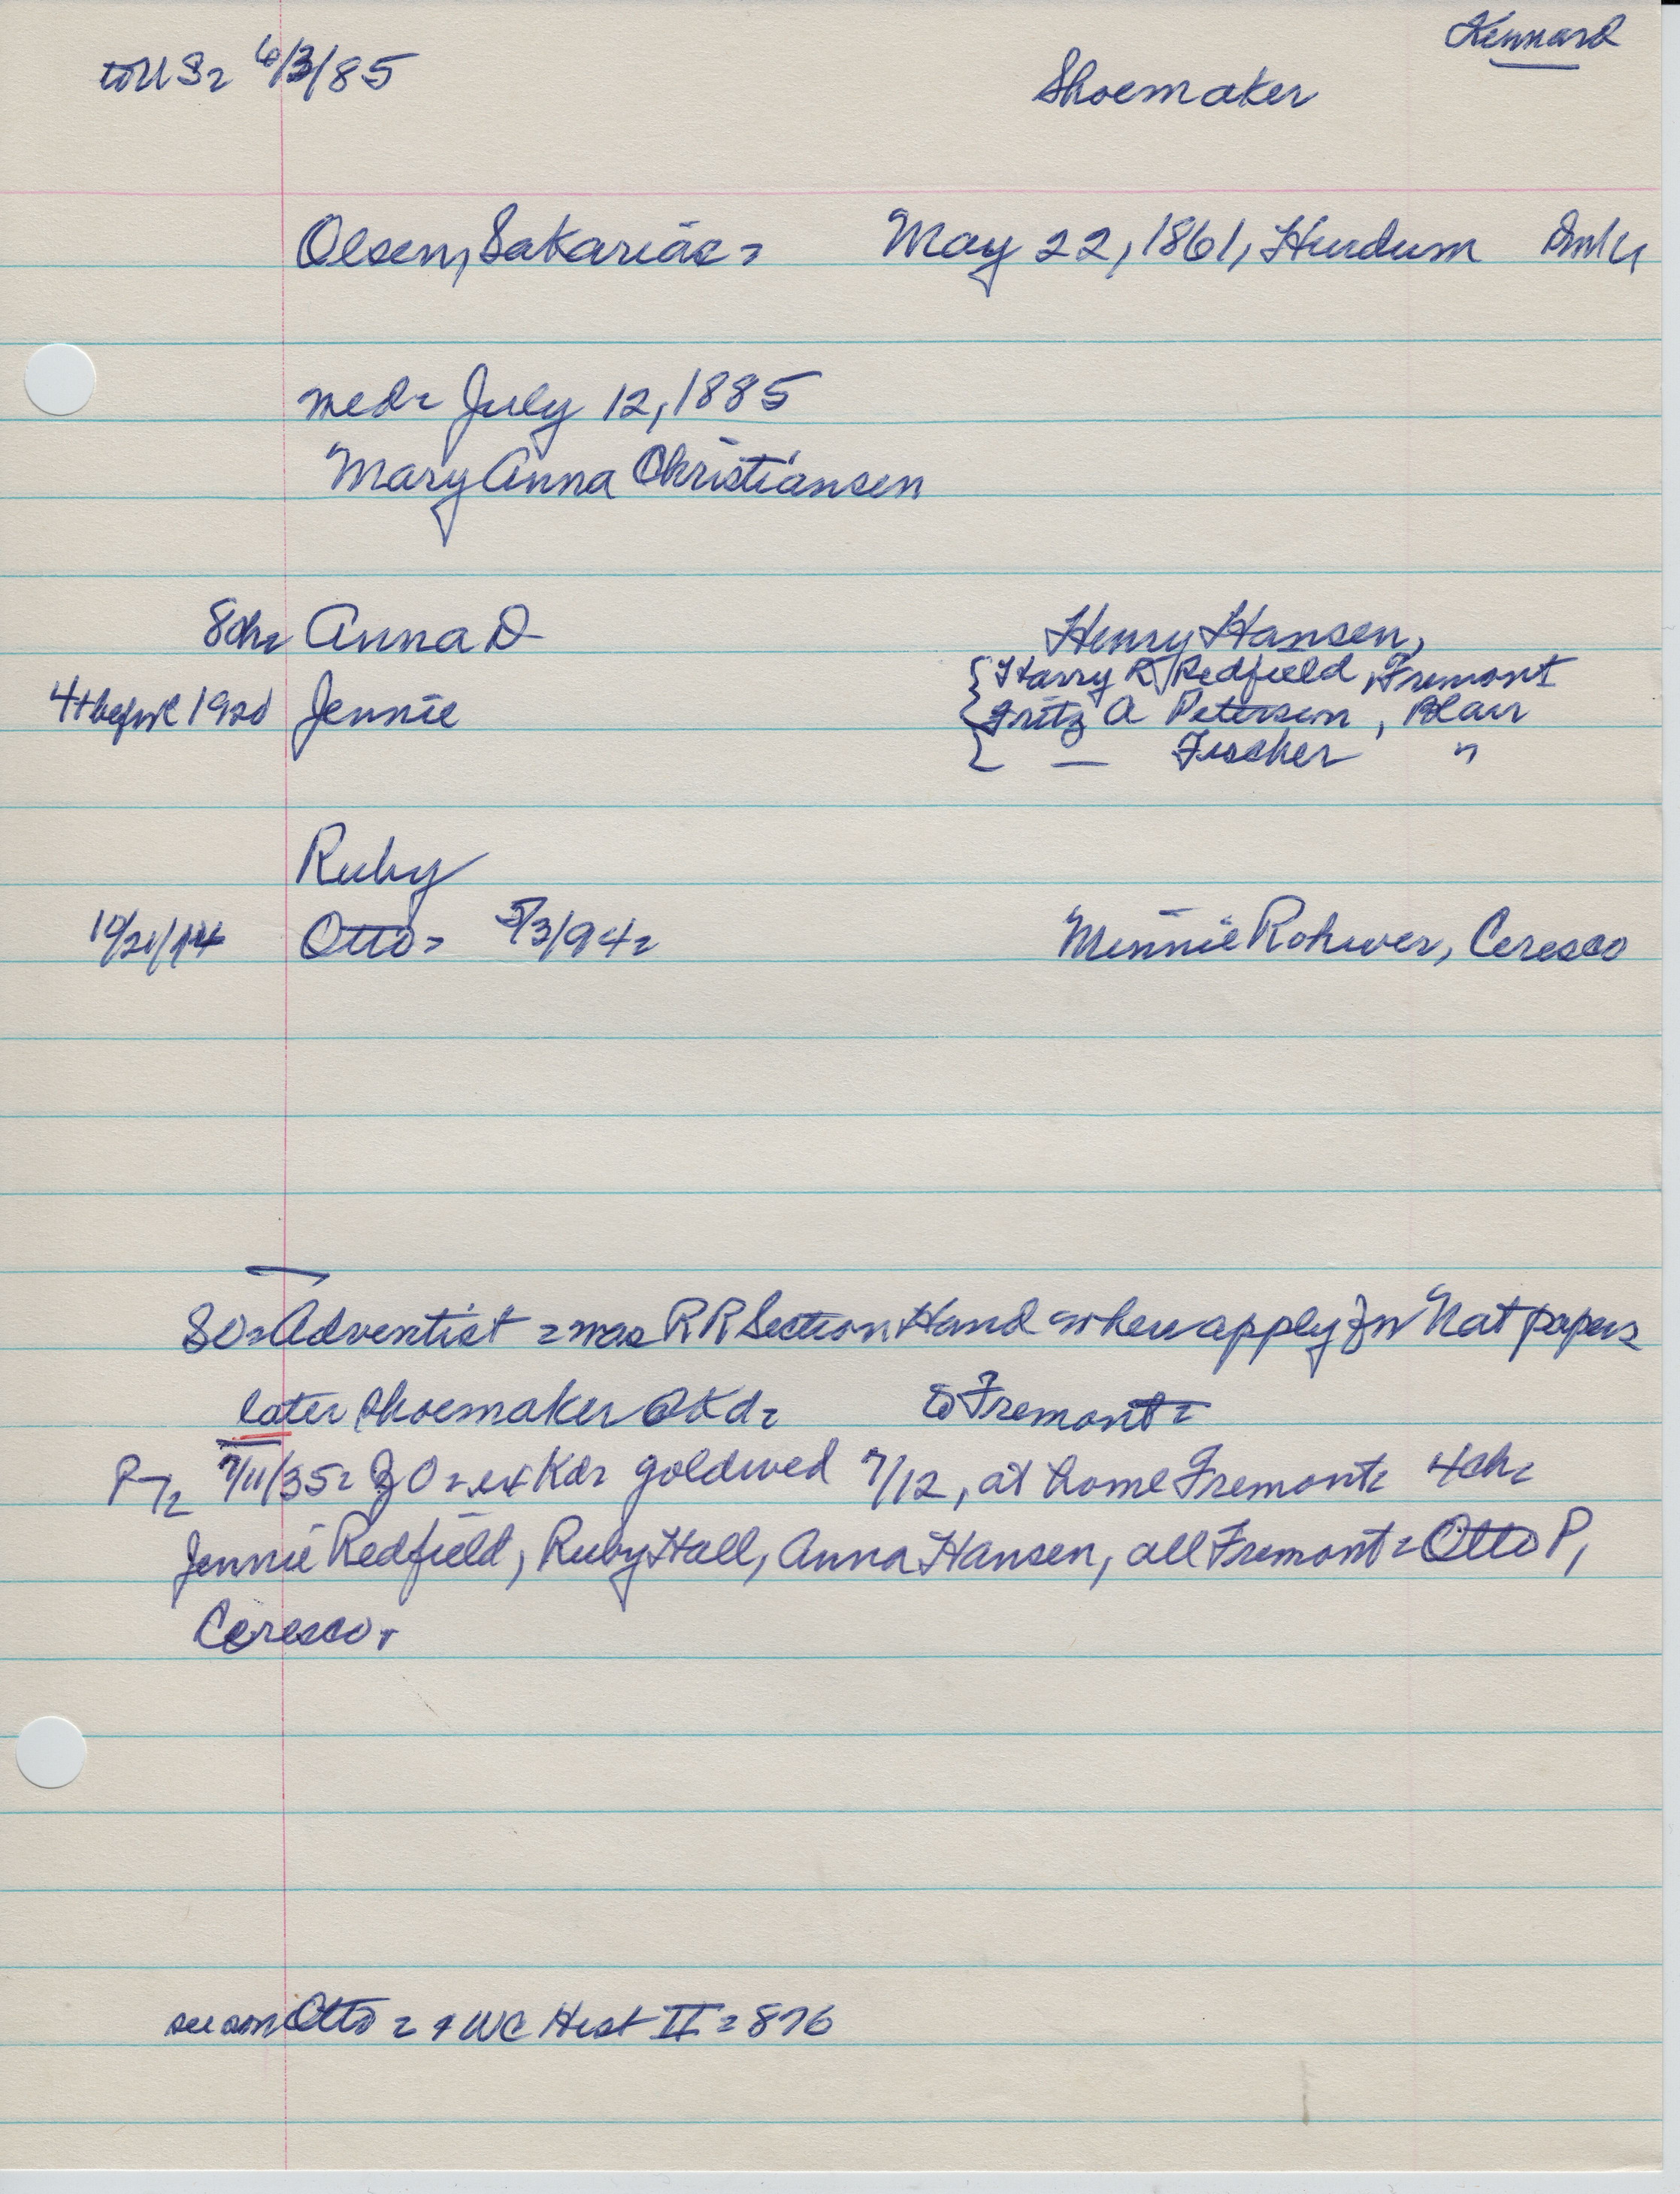 Kennard
to US = 6/3/85
Shoemaker
Olsen, Sakarias = May 22, 1861, Hurdum Dmk
med = July 12, 1885
Mary Anna Christiansen
8ch = Anna D Henry Hansen,
{ Harry R Redfield, Fremont
4th before 1920 Jennie { Fritz A Petersen, Blair
{ — Fischer "
Ruby
10/21/14 Otto = 5/3/94 = Minnie Rohwer, Ceresco
SO = Adventist = was RR Section Hand = when apply for Nat papers
later shoemaker @ Kd = to Fremont =
P = 7/11/35 = ZO = ex Kd = gold wed 7/12, at home Fremont = 4ch =
Jennie Redfield, Ruby Hall, Anna Hansen, all Fremont = Otto P,
Ceresco.
see son Otto = & WC Hist II = 876